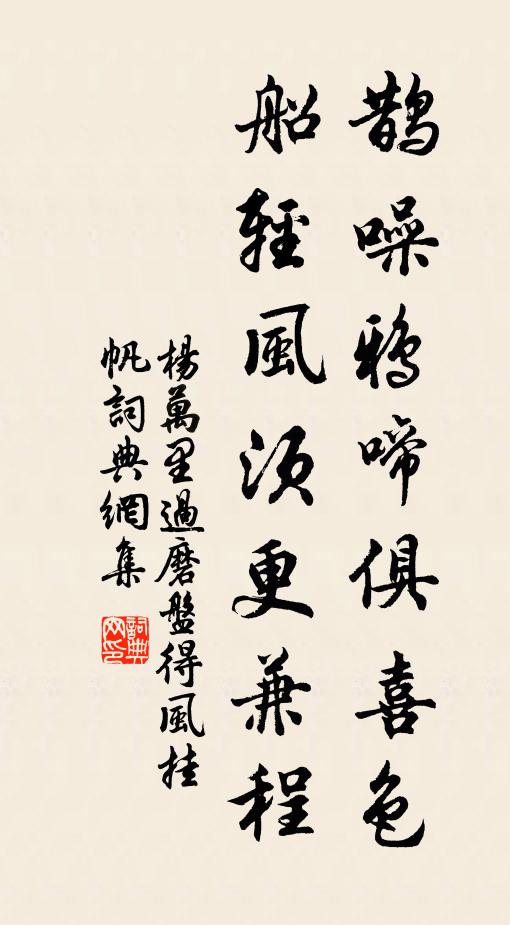 鵲噪鴉啼俱喜色
船輕風須更兼程
楊萬里過磨盤得風挂
帆詞典網集
詞典网印